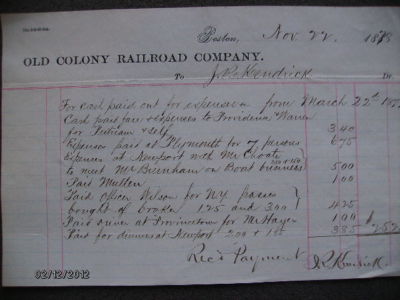 Boston, Nov 22 1878
OLD COLONY RAILROAD COMPANY.
To J R Kendrick Dr
For cash paid out for expenses on from March 22d 187
Cash paid fare & expenses to Providence & Warren
for Putnam & self 3 40
Expenses paid at Plymouth for 7 persons 6 75
Expenses at Newport with Mr Choate
to meet Mr Burnham on Boat business 5 00
Paid Mullen 1 00
Paid Officer Wilson for N.Y. passes
bought of broker 1 25 and 3 00 4 25
Paid dinner at Provincetown for Mr Hayes 1 00
Paid for dinners at Newport 2 00 + 1 85 3 85
Rec'd Payment J R Kendrick
02/12/2012